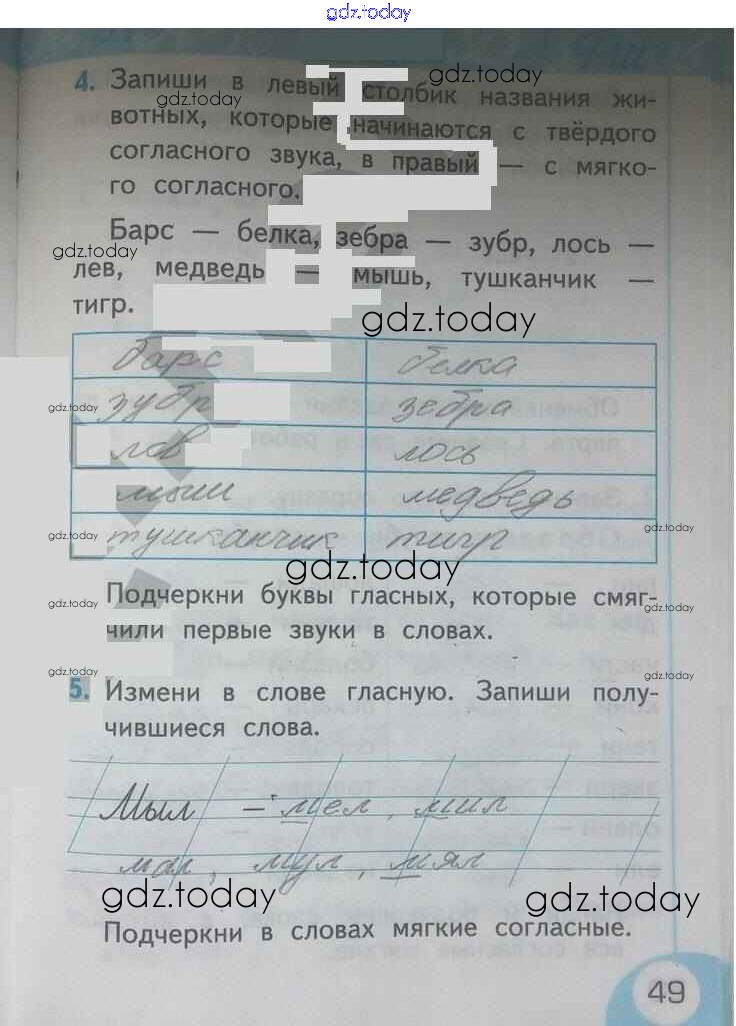 gdz.today
4. Запиши в левый столбик названия жи-
gdz.today
gdz.today
вотных, которые начинаются с твёрдого
согласного звука, в правый — с мягко-
го согласного.
Барс — белка, зебра — зубр, лось —
gdz.today
лев, медведь — мышь, тушканчик —
тигр.
gdz.today
барс белка
зубр зебра
gdz.today
лев лось
мыши медведь
gdz.today
gdz.today
тушканчик тигр
gdz.today
Подчеркни буквы гласных, которые смяг-
gdz.today
gdz.today
чили первые звуки в словах.
gdz.today
gdz.today
5. Измени в слове гласную. Запиши полу-
чившиеся слова.
Мыл — мел, мил
мал, мул, мял
gdz.today
gdz.today
Подчеркни в словах мягкие согласные.
49